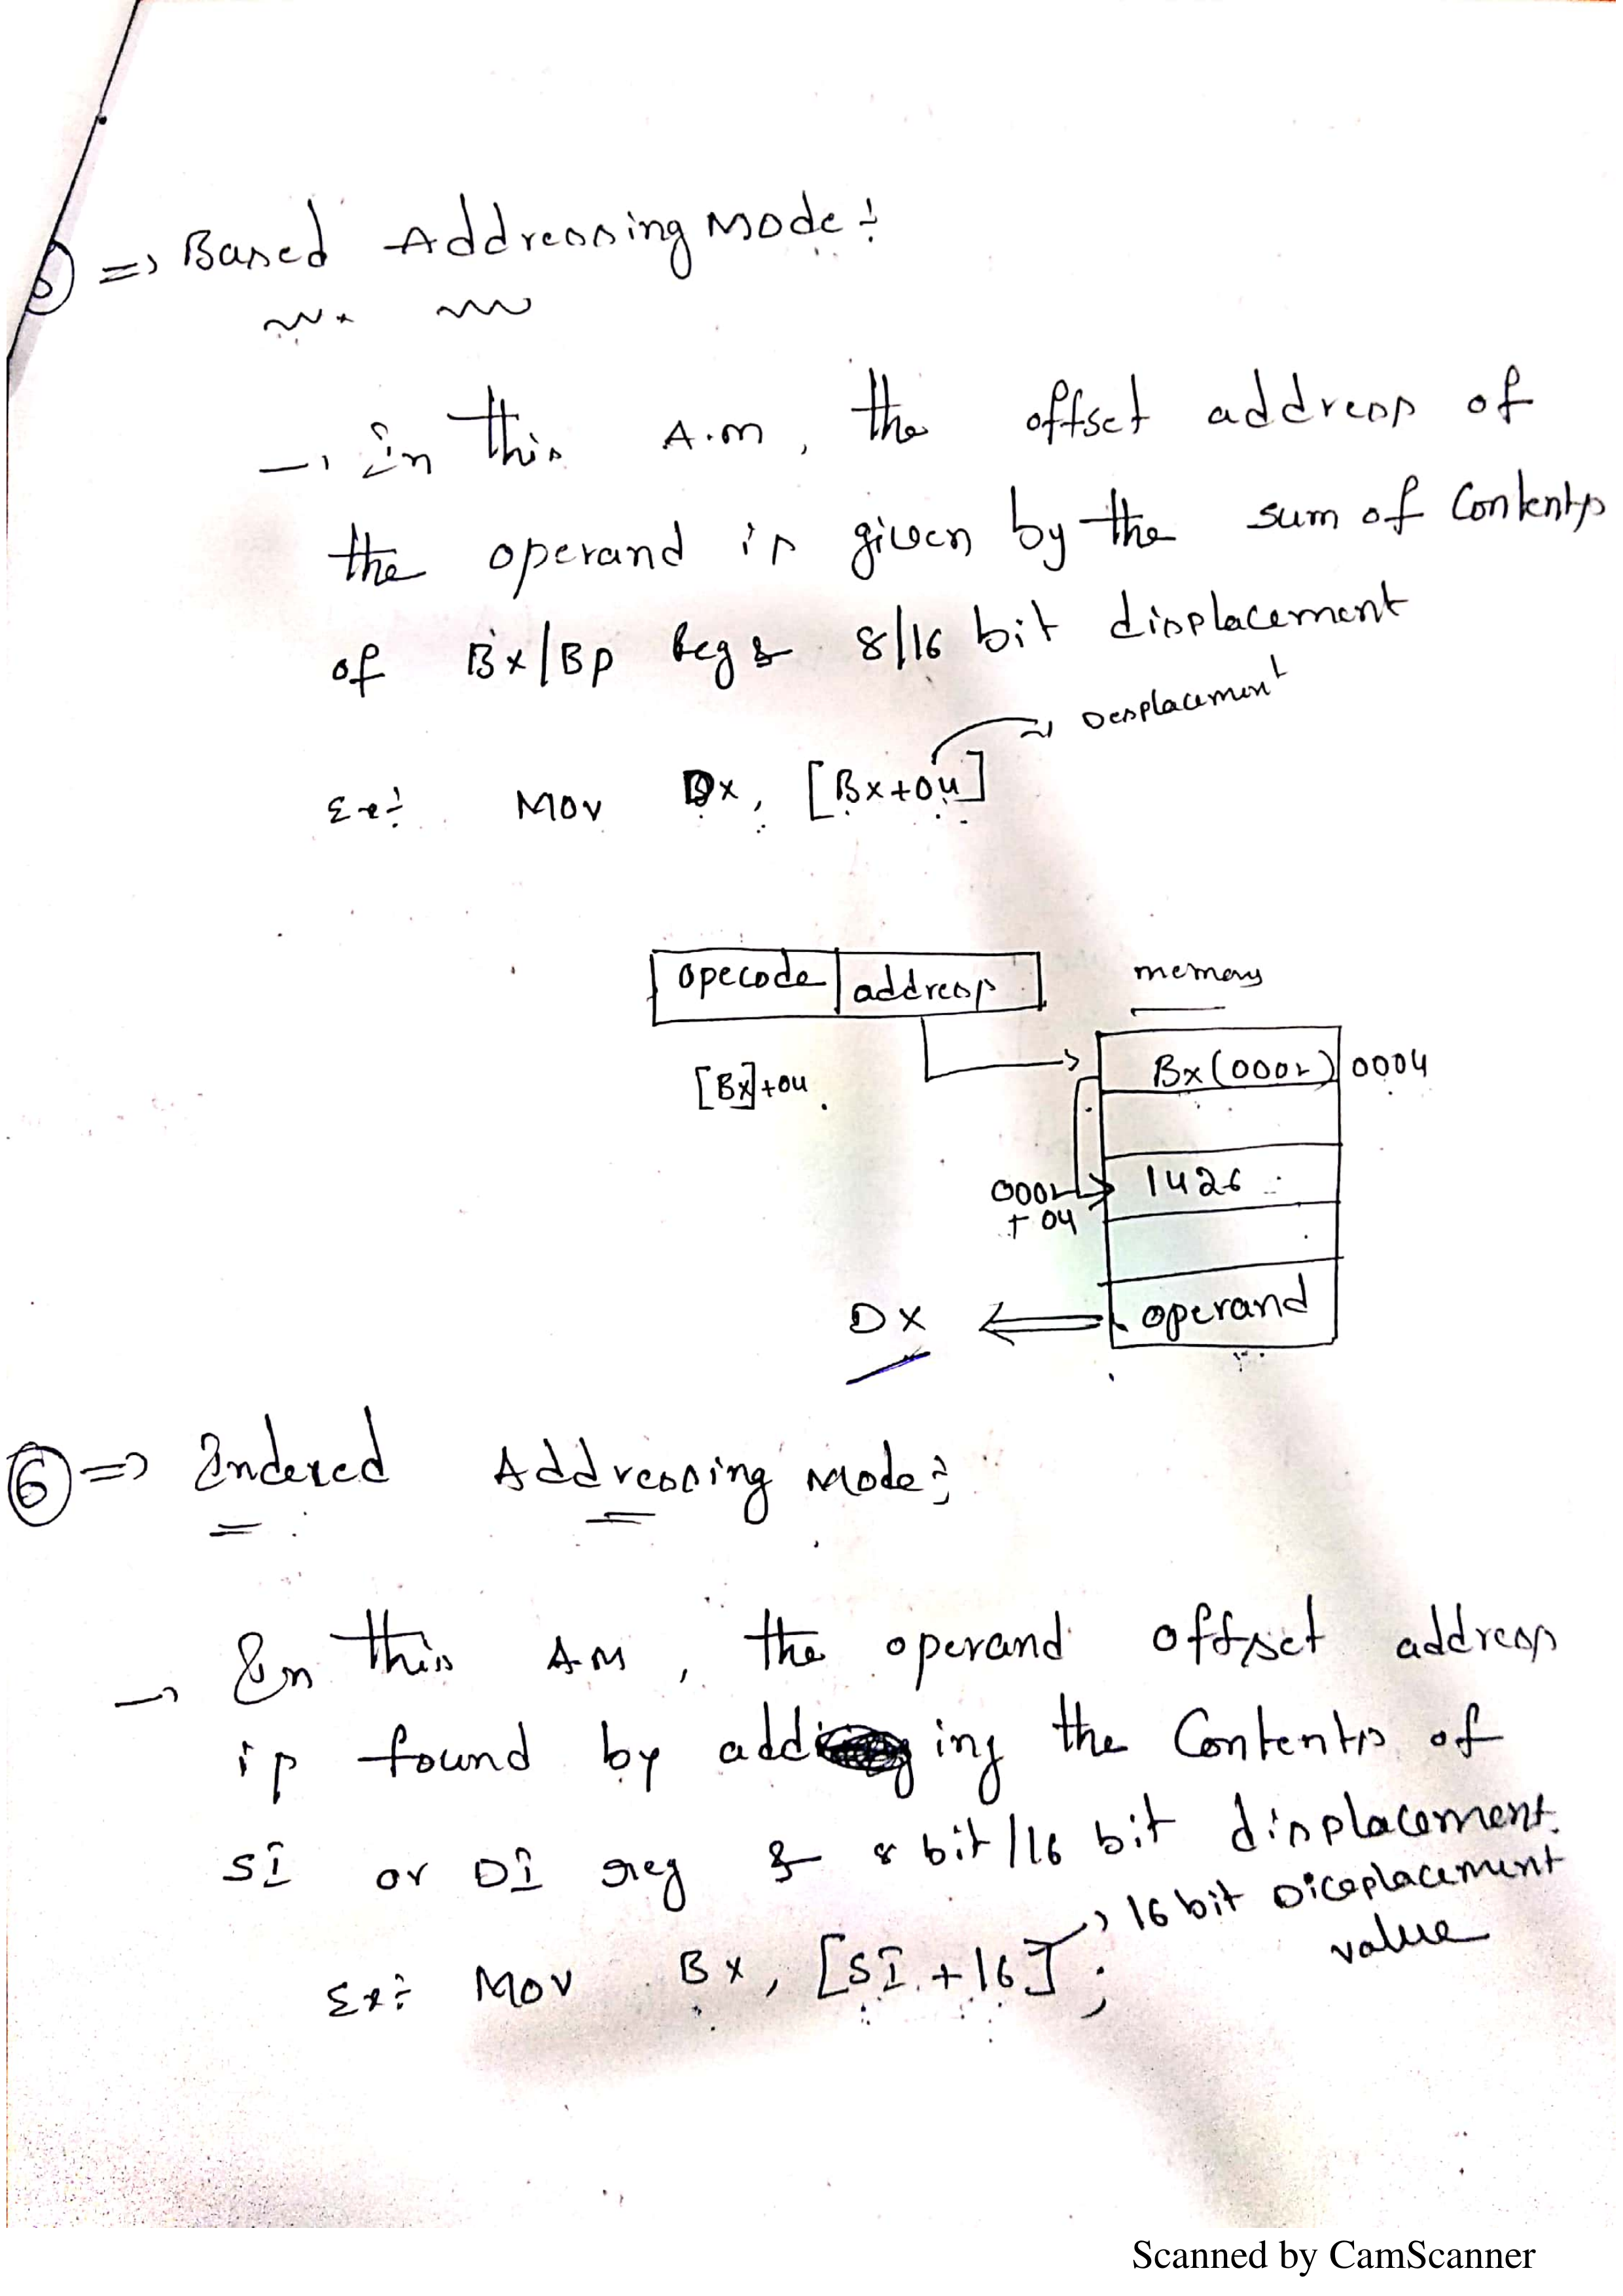 5 => Based Addressing Mode :
→ In this A.M, the offset address of
the operand is given by the sum of Contents
of Bx/BP Reg & 8/16 bit displacement
Desplacement
Ex: Mov Dx, [Bx+04]
opecode address
memory
[Bx]+04
Bx(0002) 0004
0002
+ 04
1426
DX operand
6 => Indexed Addressing Mode :
→ In this AM, the operand offset address
is found by adding the Contents of
SI or DI reg & 8 bit/16 bit displacement.
16 bit Diceplacement
value
Ex: Mov Bx, [SI+16];
Scanned by CamScanner